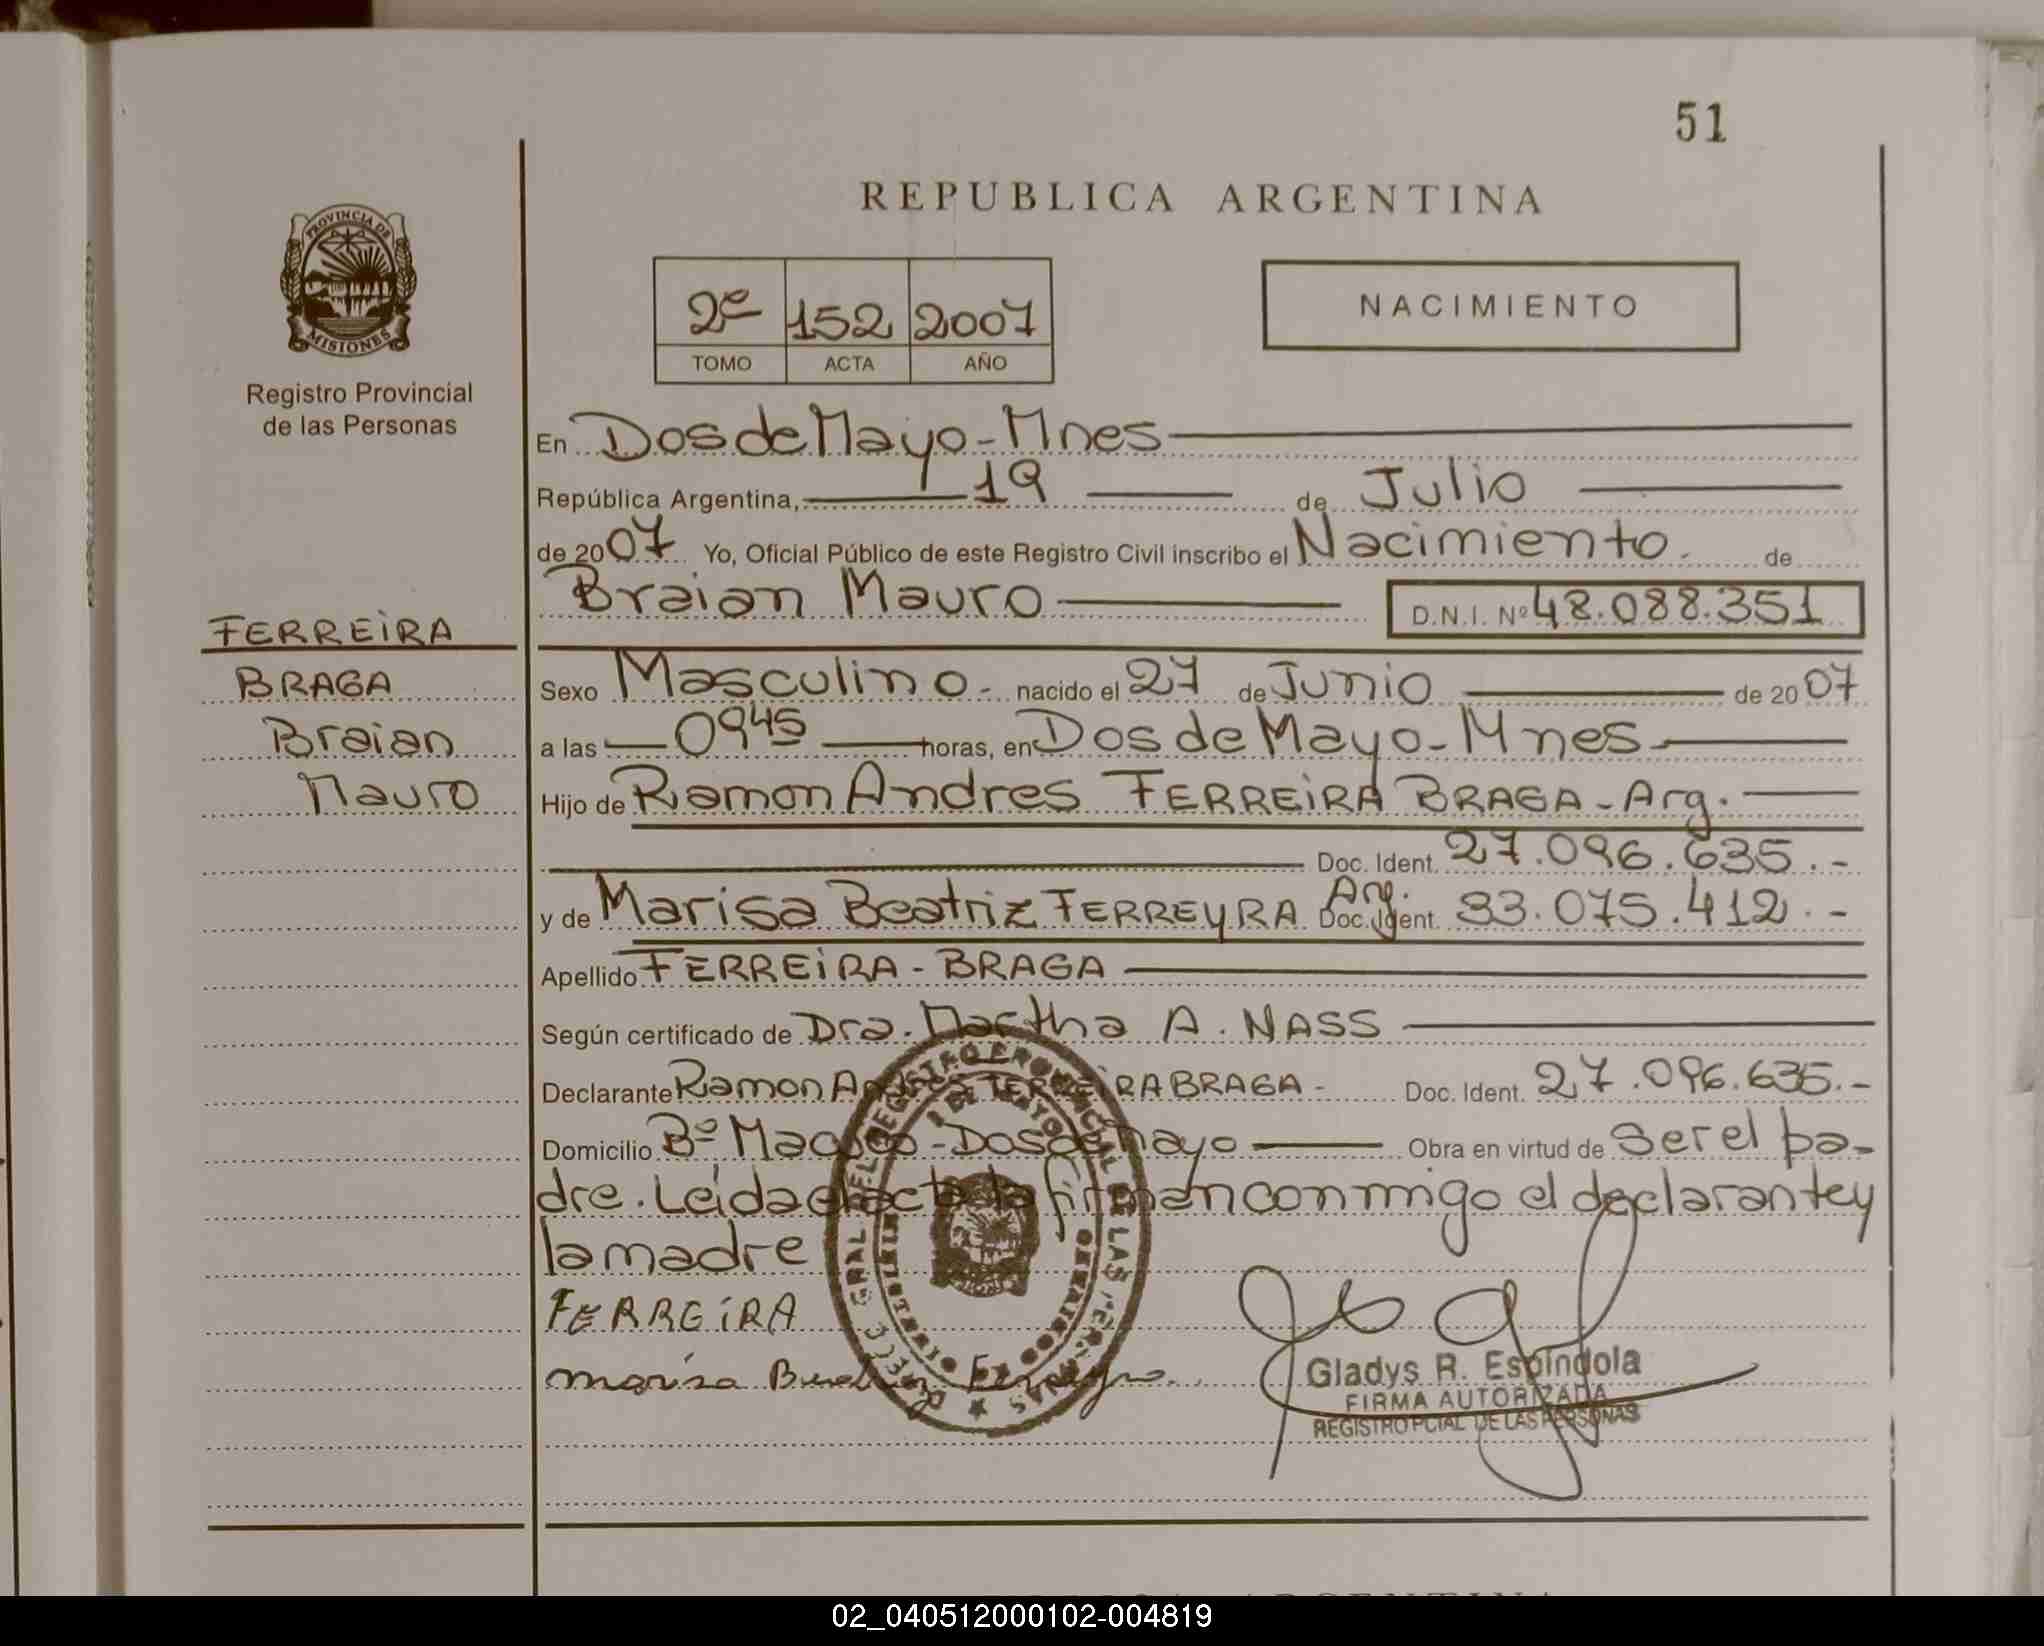 51
REPUBLICA ARGENTINA
PROVINCIA DE
MISIONES
Registro Provincial
de las Personas
2º 152 2007
TOMO ACTA AÑO
NACIMIENTO
En Dos de Mayo - Mnes
República Argentina, 19 de Julio
de 2007 Yo, Oficial Público de este Registro Civil inscribo el Nacimiento. de
Braian Mauro D.N.I. Nº 48.088.351
FERREIRA
BRAGA
Braian
Mauro
Sexo Masculino - nacido el 27 de Junio de 2007
a las 0945 horas, en Dos de Mayo - Mnes
Hijo de Ramon Andres FERREIRA BRAGA - Arg.
Doc. Ident. 27.096.635.-
y de Marisa Beatriz FERREYRA Arg. Doc. Ident. 33.075.412.-
Apellido FERREIRA - BRAGA
Según certificado de Dra. Martha A. NASS
Declarante Ramon Andres FERREIRA BRAGA - Doc. Ident. 27.096.635.-
Domicilio Bº - Dos de Mayo Obra en virtud de Ser el pa-
dre. Leida el acta la firman conmigo el declarante y
la madre
FERREIRA
Marisa Ferreyra
Gladys R. Espíndola
FIRMA AUTORIZADA
REGISTRO PCIAL DE LAS PERSONAS
02_040512000102-004819